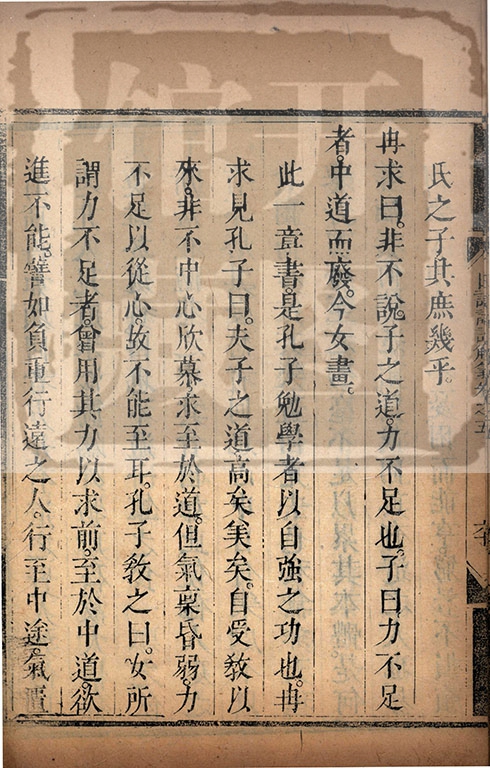 氏之子其庶幾乎。
冉求曰。非不說子之道。力不足也。子曰力不足
者。中道而廢。今女畫。
此一章書。是孔子勉學者以自強之功也。冉
求見孔子曰。夫子之道高矣美矣。自受教以
來。非不中心欣慕求至於道。但氣稟昏弱。力
不足以從心。故不能至耳。孔子教之曰。女所
謂力不足者。曾用其力以求前。至於中道。欲
進不能。譬如負重行遠之人。行至中途。氣